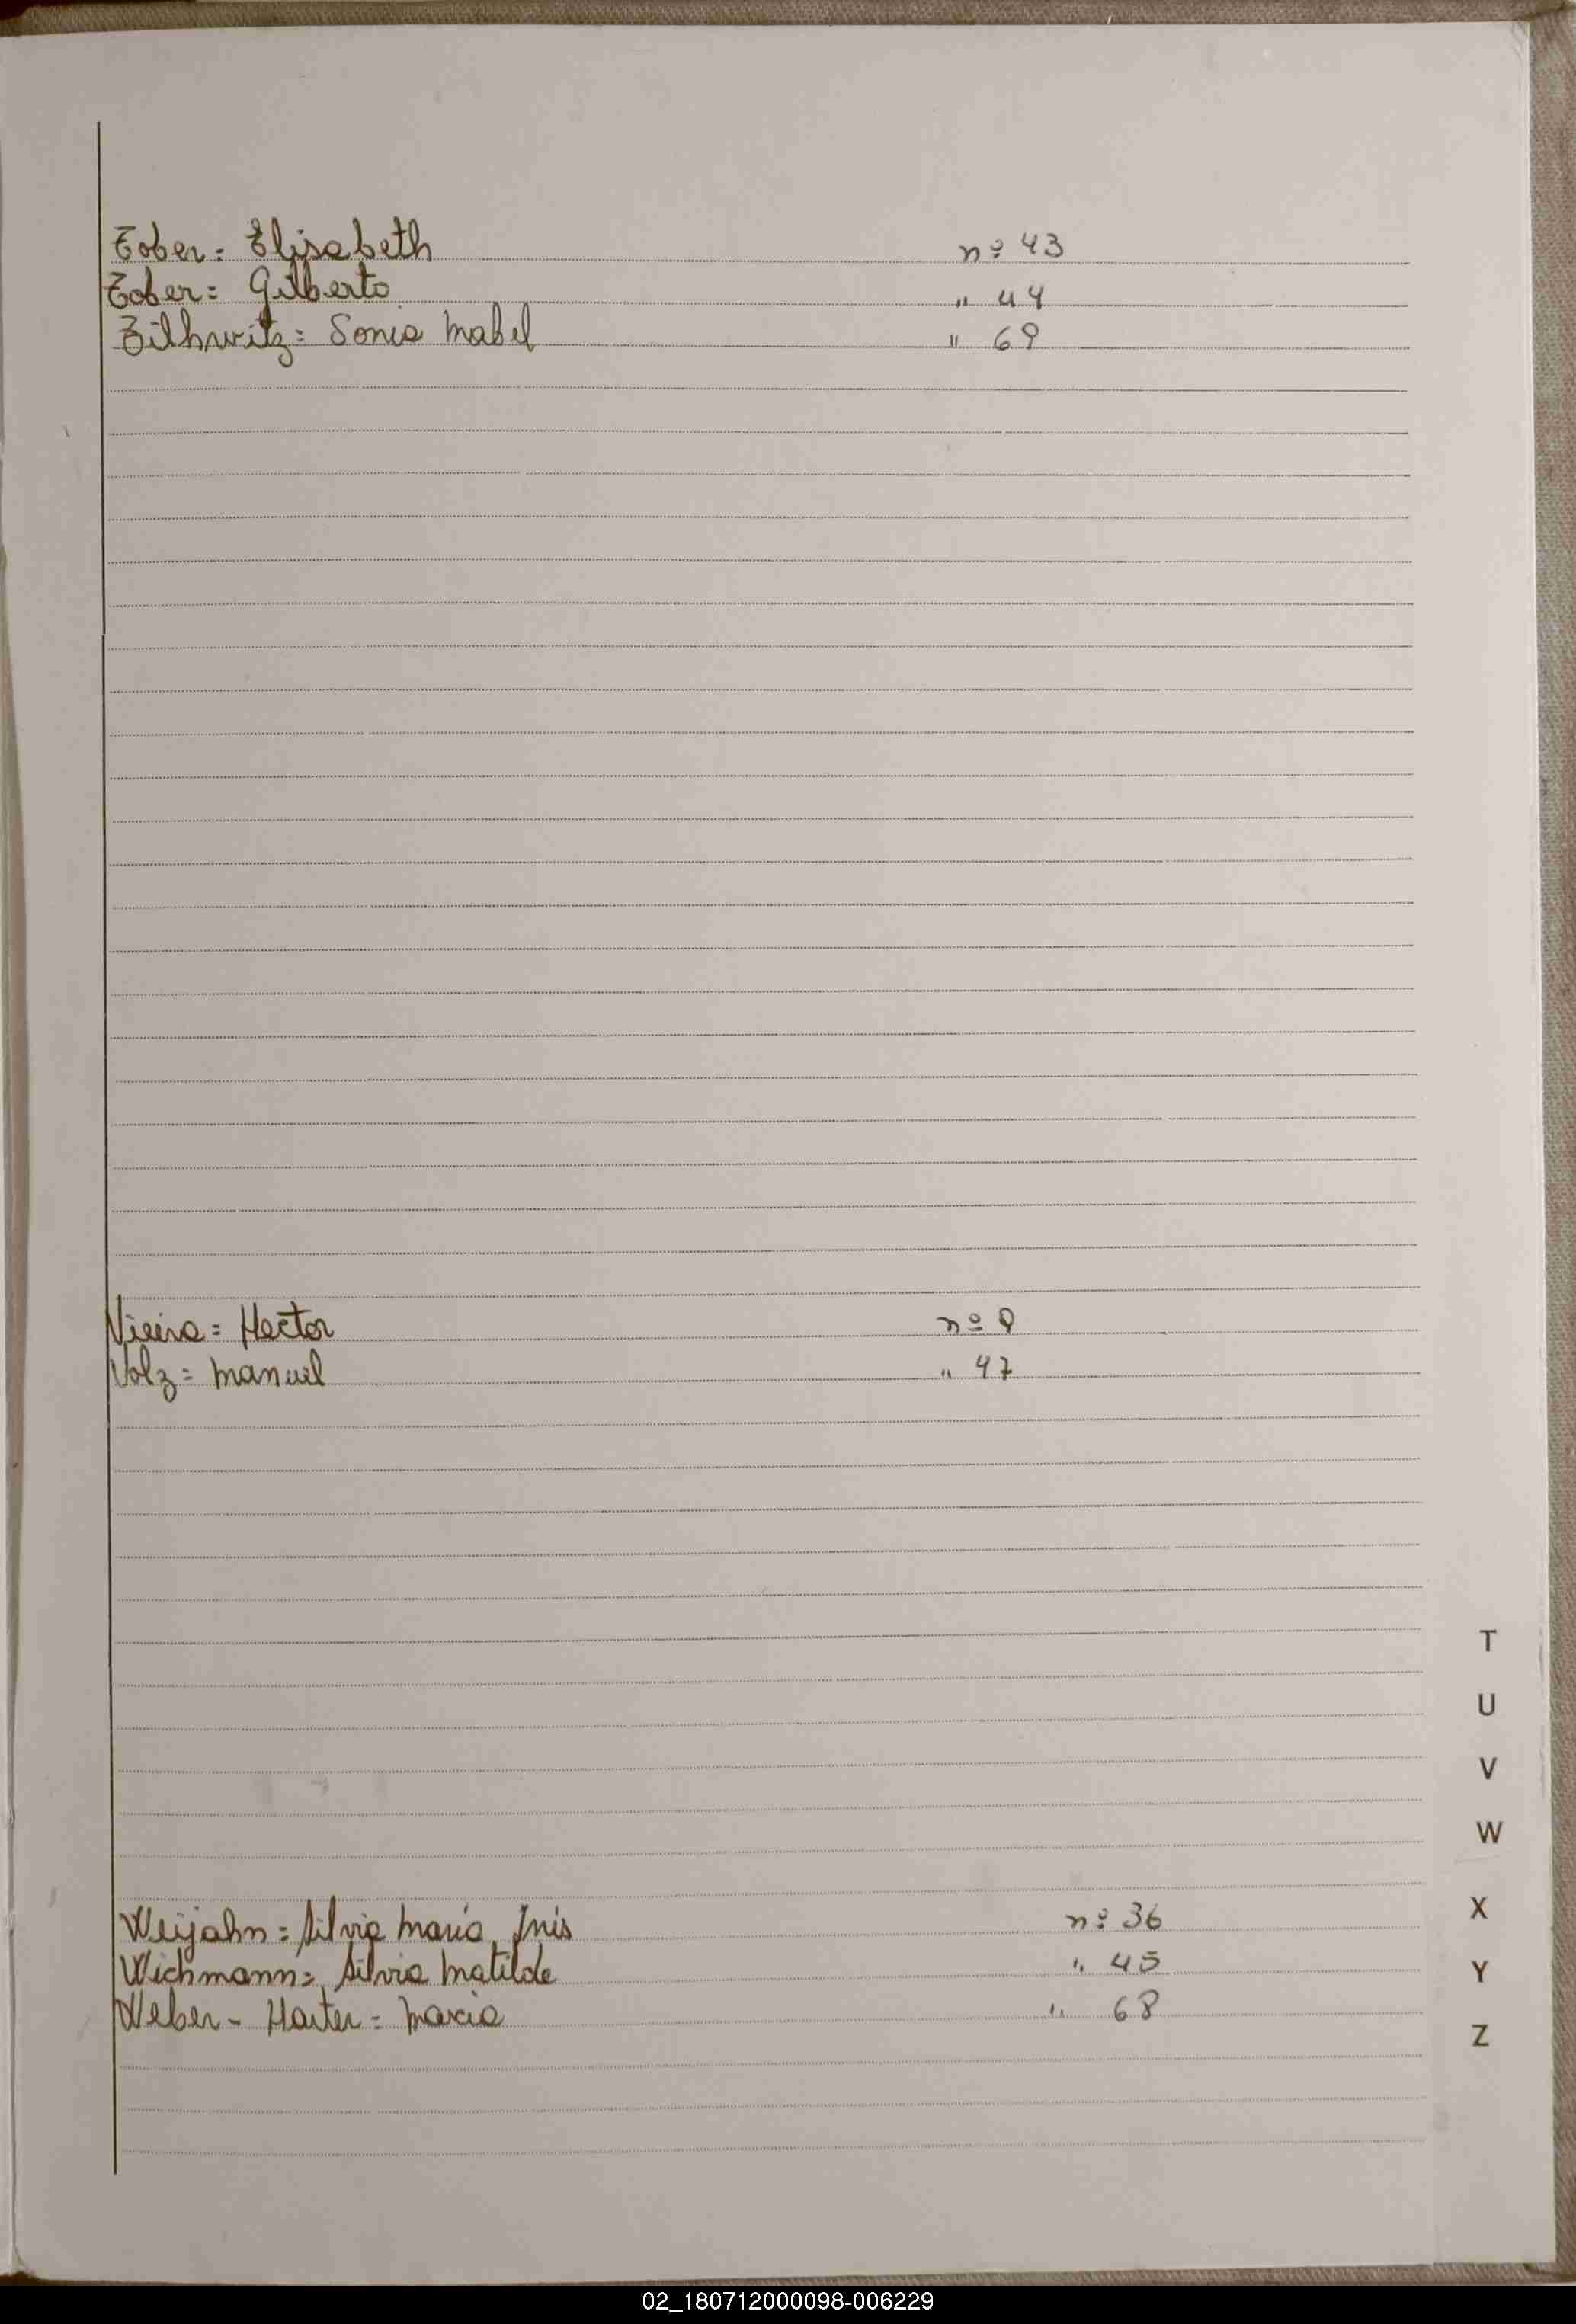 Tober = Elisabeth nº 43
Tober = Gilberto " 44
Tilhwitz = Sonia Mabel " 69
Vieira = Hector nº 9
Volz = Manuel " 47
T
U
V
W
Weijahn = Silvia Maria Inés nº 36
X
Wichmann = Silvia Matilde " 45
Y
Weber - Harter = Maria " 68
Z
02_180712000098-006229